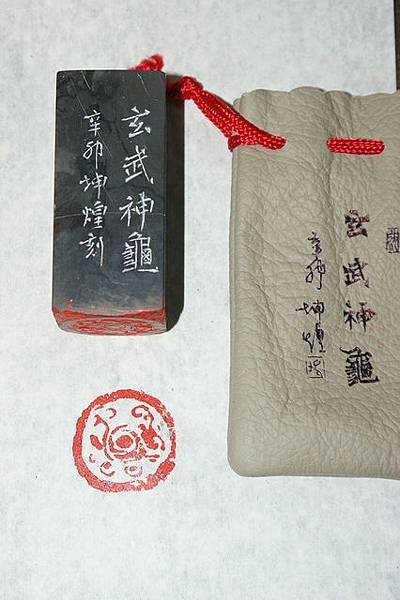 玄武神龜
辛卯坤煌刻
玄武神龜
辛卯坤煌